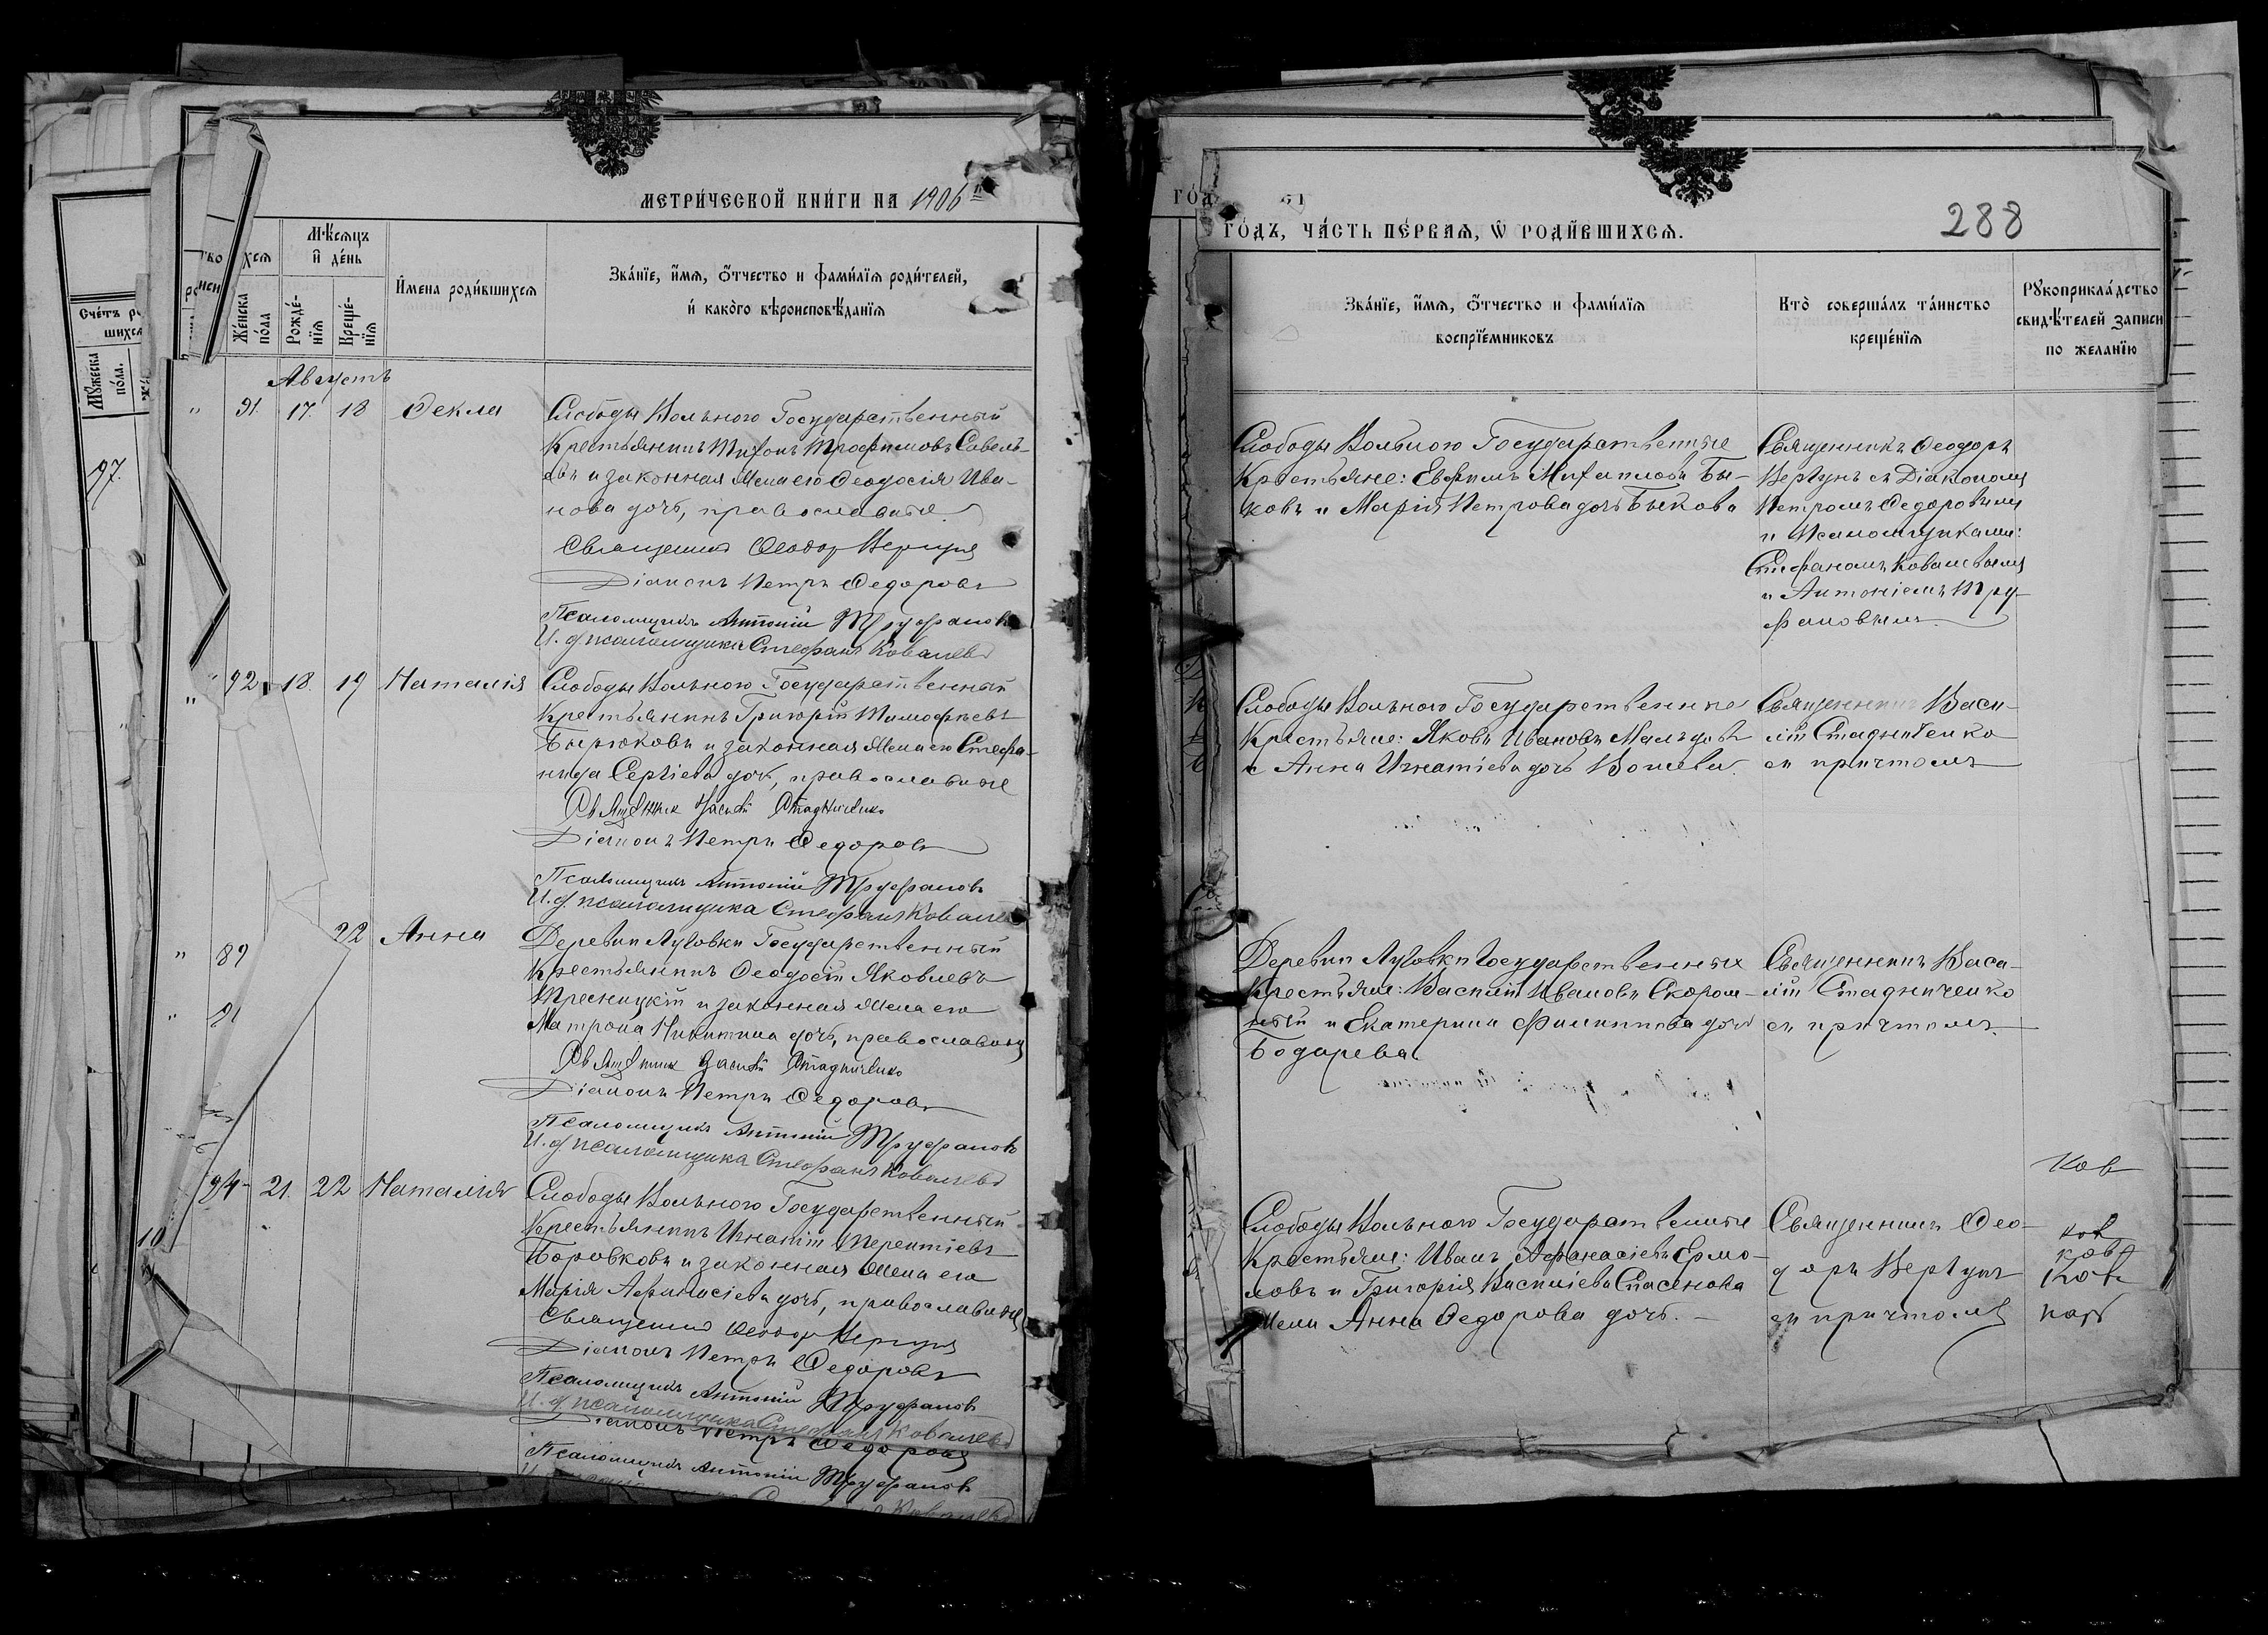 МЕТРИ́ЧЕСКОЙ КНИ́ГИ НА 1906
Счéтъ
МУ́жеска по́ла.
97.
Же́нска по́ла
Мѣ́сяцъ и де́нь
Рожде́нїя
Креще́нїя
И́мена роди́вшихся
Зва́нїе, и́мя, о́тчество и фами́лїя роди́телей,
и како́го вѣроисповѣ́данїя
Августъ
" 91. 17. 18 Ѳекла
Слободы Вольного Государственный
Крестьянинъ Тихонъ Трофимовъ Савель-
евъ и законная жена его Ѳеодосія Ива-
нова дочь, православные.
Священник Ѳеодор Вергунъ
Діаконъ Петръ Ѳедоровъ
Псаломщикъ Антоній Труфановъ
И. д. псаломщика Стефанъ Ковалевъ
" 92. 18. 19 Наталія
Слободы Вольного Государственный
Крестьянинъ Григорій Тимофеевъ
Бирюковъ и законная жена его Стефа-
нида Сергіева дочь, православные
Священник Василій Стадниченко
Діаконъ Петръ Ѳедоровъ
Псаломщикъ Антоній Труфановъ
И. д. псаломщика Стефанъ Ковалевъ
" 89
" 91
22 Анна
Деревни Луговки Государственный
Крестьянинъ Ѳеодосій Яковлевъ
и законная жена его
Матрона Никитина дочь, православные
Священник Василій Стадниченко
Діаконъ Петръ Ѳедоровъ
Псаломщикъ Антоній Труфановъ
И. д. псаломщика Стефанъ Ковалевъ
94 21. 22 Наталія
Слободы Вольного Государственный
Крестьянинъ Игнатій Терентіевъ
Боровковъ и законная жена его
Марія Афанасіева дочь, православные
Священник Ѳеодор Вергунъ
Діаконъ Петръ Ѳедоровъ
Псаломщикъ Антоній Труфановъ
И. д. псаломщика Стефанъ Ковалевъ
Діаконъ Петръ Ѳедоровъ
Псаломщикъ Антоній Труфановъ
Ковалевъ
10
ГО́ДЪ, ЧА́СТЬ ПЕ́РВАЯ, Ѡ РОДИ́ВШИХСЯ.
288
Зва́нїе, и́мя, о́тчество и фами́лїя
воспрїе́мниковъ
Кто̀ соверша́лъ та́инство
креще́нїя
РУкоприкла́дство
свидѣ́телей записи
по жела́нїю
Слободы Вольного Государственные
Крестьяне: Евфимъ Михаиловъ Бы-
ковъ и Марія Петрова дочь Быкова
Священникъ Ѳеодоръ
Вергунъ съ Діакономъ
Петромъ Ѳедоровымъ
и Псаломщиками:
Стефаномъ Ковалевымъ
и Антоніемъ Тру-
фановымъ.
Слободы Вольного Государственные
Крестьяне: Яковъ Ивановъ
и Анна Игнатіева дочь
Священникъ Васи-
лій Стадниченко
съ причтомъ
Деревни Луговки Государственныя
Крестьяне: Василій Ивановъ Скором-
ный и Екатерина Филиппова дочь
Бодарева.
Священникъ Васи-
лій Стадниченко
съ причтомъ.
Слободы Вольного Государственные
Крестьяне: Иванъ Афанасіевъ Ермо-
ловъ и Григорія Василіева Спасенова
жена Анна Ѳедорова дочь. –
Священникъ Ѳео-
доръ Вергунъ
съ причтомъ
Ков
ков
ков
Ков